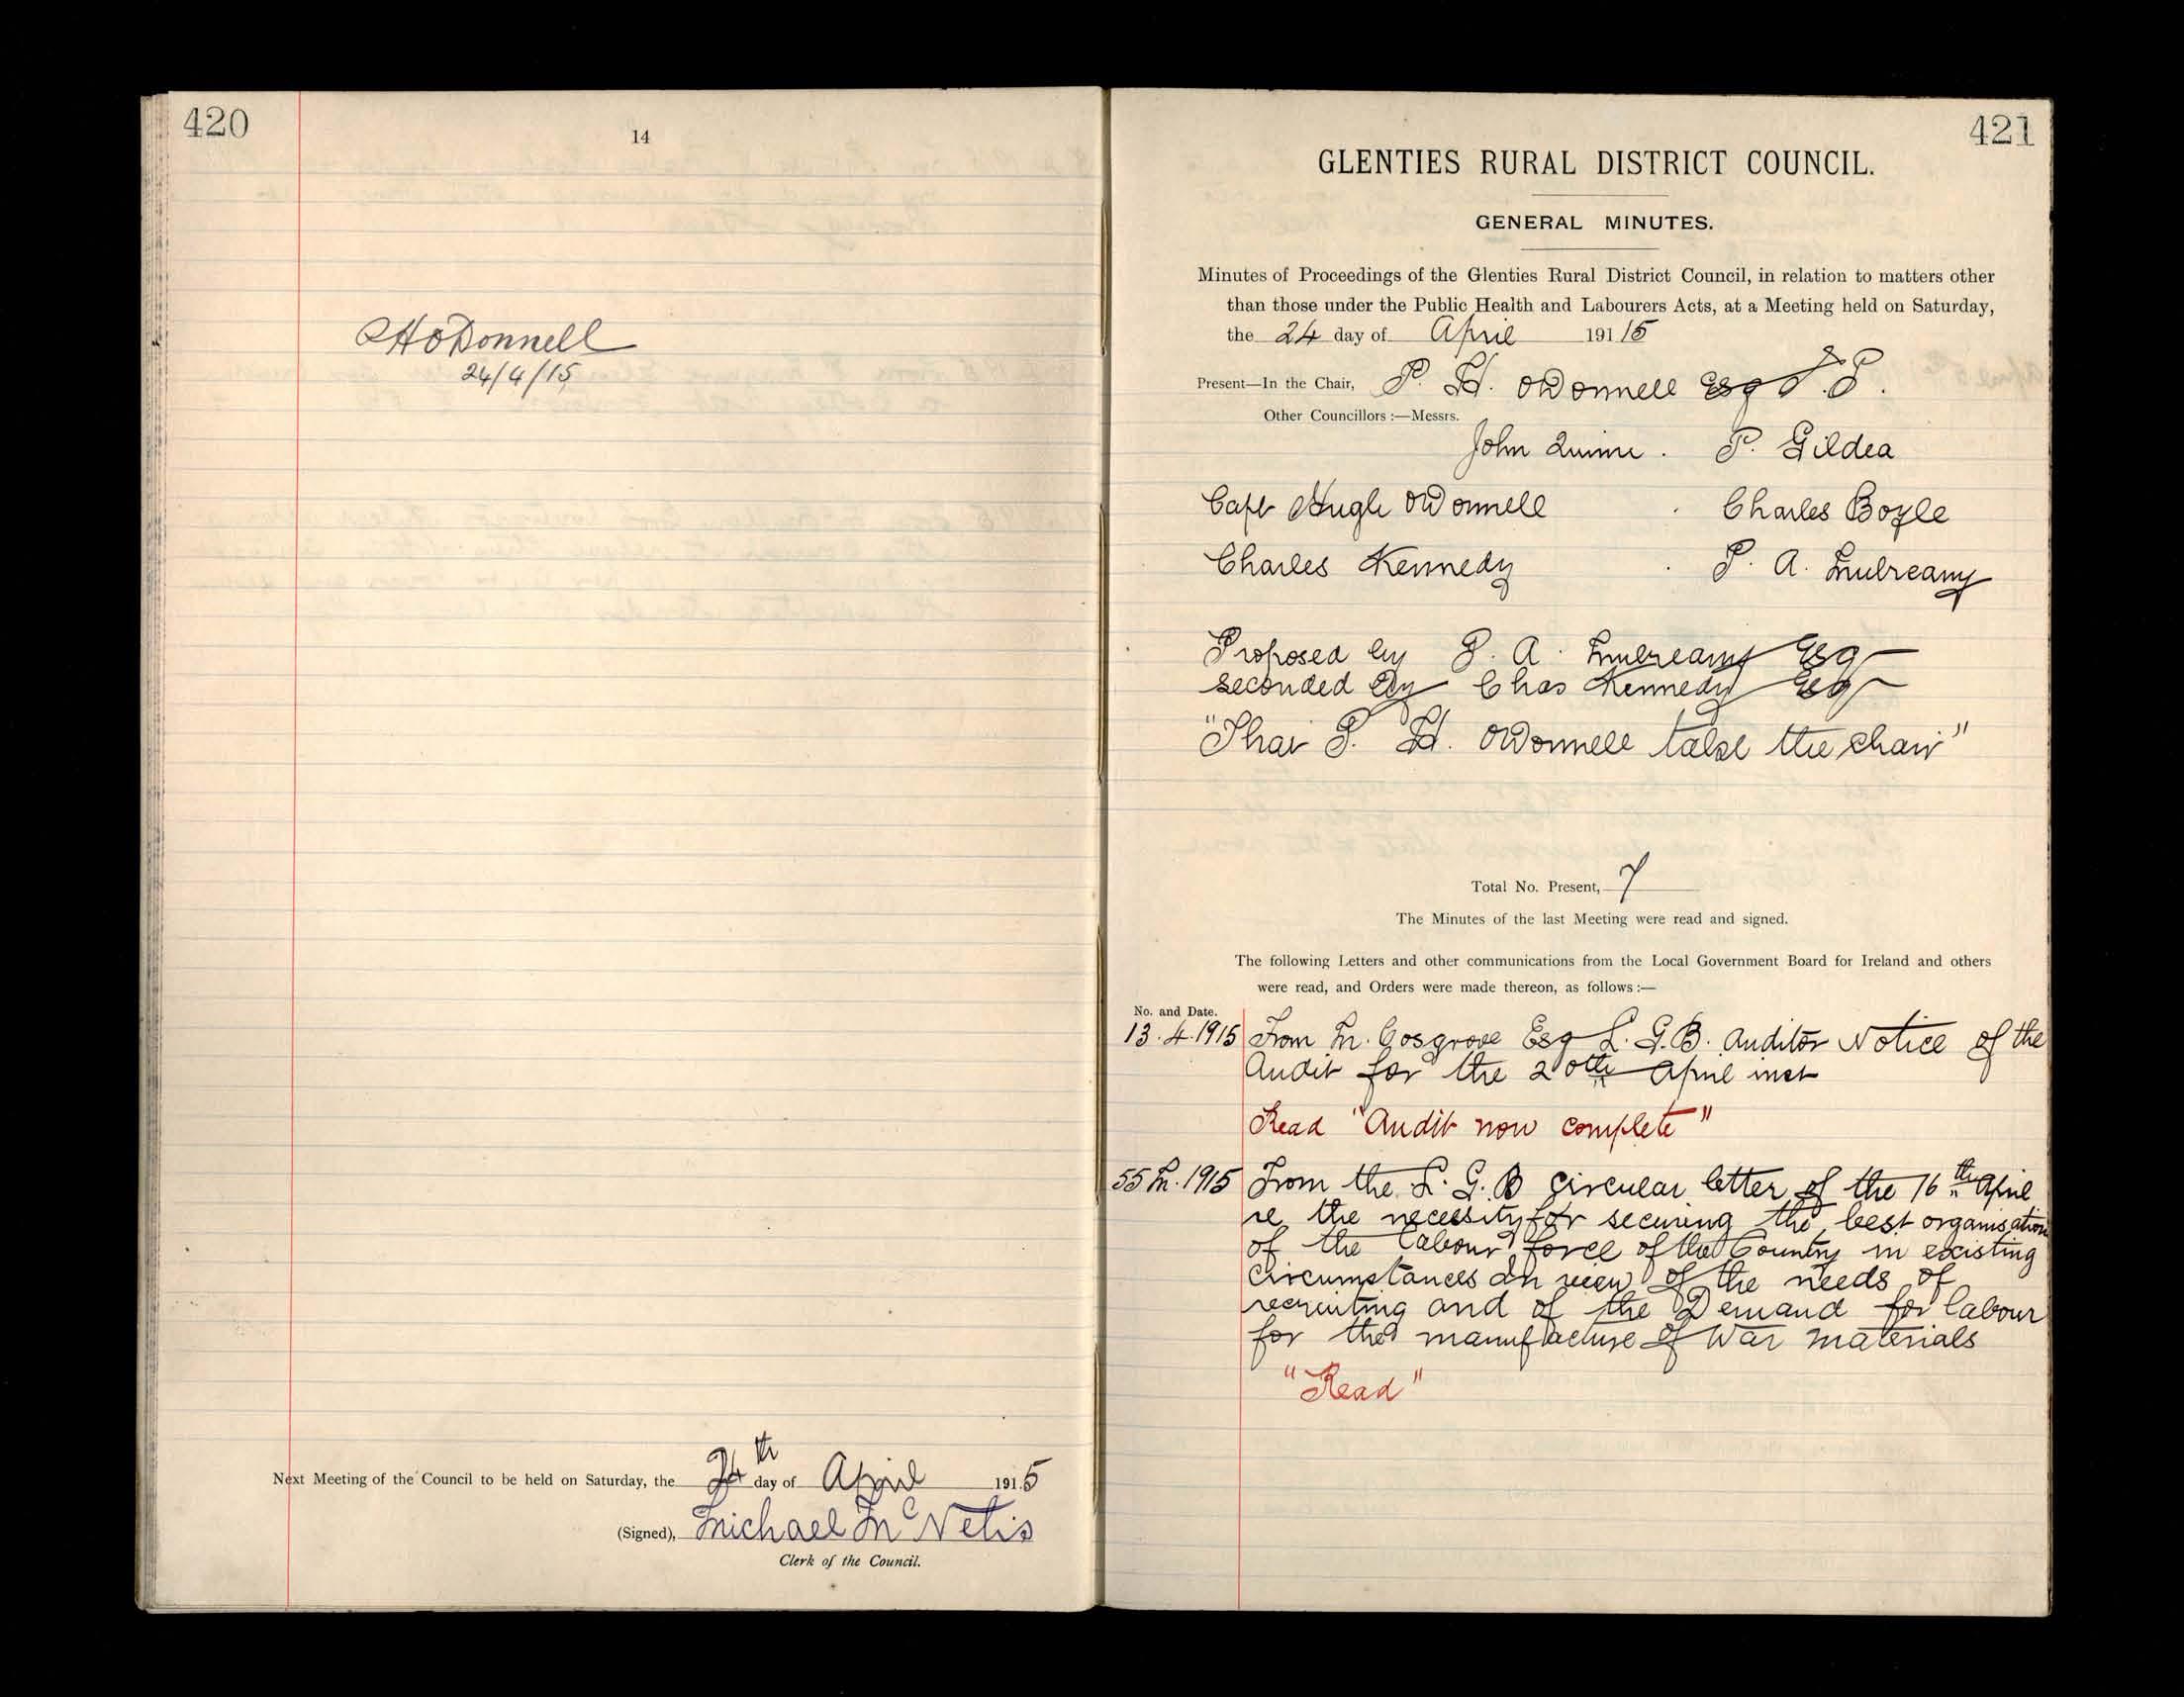 420
14
PHODonnell
24/4/15
Next Meeting of the Council to be held on Saturday, the 24th day of April 1915
(Signed), Michael McNelis
Clerk of the Council.
421
GLENTIES RURAL DISTRICT COUNCIL.
GENERAL MINUTES.
Minutes of Proceedings of the Glenties Rural District Council, in relation to matters other
than those under the Public Health and Labourers Acts, at a Meeting held on Saturday,
the 24 day of April 191 15
Present—In the Chair, P. H. ODonnell Esq J.P.
Other Councillors :—Messrs.
John Quinn . P. Gildea
Capt Hugh ODonnell . Charles Boyle
Charles Kennedy . P. A. Mulreany
Proposed by P. A. Mulreany Esq
seconded by Chas Kennedy Esq
"That P. H. ODonnell take the chair"
Total No. Present, 7
The Minutes of the last Meeting were read and signed.
The following Letters and other communications from the Local Government Board for Ireland and others
were read, and Orders were made thereon, as follows :—
No. and Date.
13.4.1915 From M. Cosgrove Esq L.G.B. Auditor Notice of the
Audit for the 20th April inst
Read "Audit now complete"
55 M.1915 From the L.G.B circular letter of the 16th April
re the necessity for securing the best organisation
of the labour force of the Country in existing
circumstances in view of the needs of
recruiting and of the Demand for labour
for the manufacture of War materials
"Read"